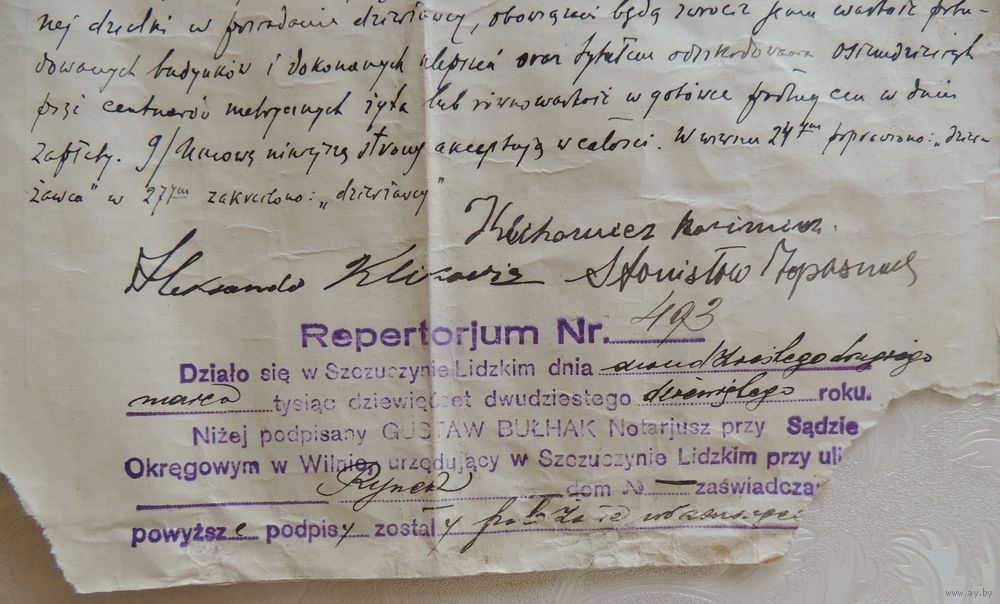 nej działki w posiadaniu dzierżawcy, obowiązani będą zwrócić jemu wartość pobu-
dowanych budynków i dokonanych ulepszeń oraz tytułem odszkodowania osiemdziesiąt
pięć centnarów metrycznych żyta lub równowartość w gotówce podług cen w dniu
zapłaty. 9/ Umowę niniejszą strony akceptują w całości. W wierszu 24tym poprawiono: „dzier-
żawca" w 27ym zakreślono: „dzierżawcy"
Klikowicz Kazimierz.
Aleksander Klikowicz Stanisław
493
Repertorjum Nr.
Działo się w Szczuczynie Lidzkim dnia dwudziestego drugiego
marca tysiąc dziewięćset dwudziestego dziewiątego roku.
Niżej podpisany GUSTAW BUŁHAK Notarjusz przy Sądzie
Okręgowym w Wilnie, urzędujący w Szczuczynie Lidzkim przy uli
Rynek dom № — zaświadcza
powyższe podpisy zostały
www.ay.by